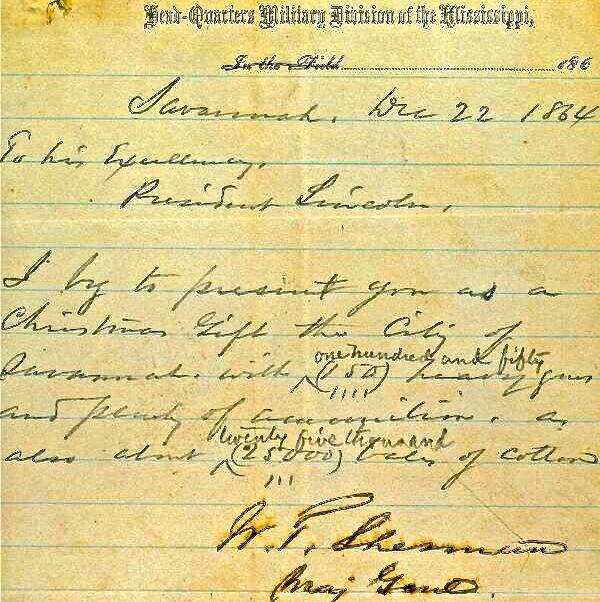 Head-Quarters Military Division of the Mississippi,
In the Field 186
Savannah, Dec 22 1864
To his Excellency,
President Lincoln,
I beg to present you as a
Christmas Gift the City of
one hundred and fifty
Savannah. with (150) heavy guns
and plenty of ammunition. &
twenty five thousand
also about (25000) bales of cotton
W. T. Sherman
Maj Genl.